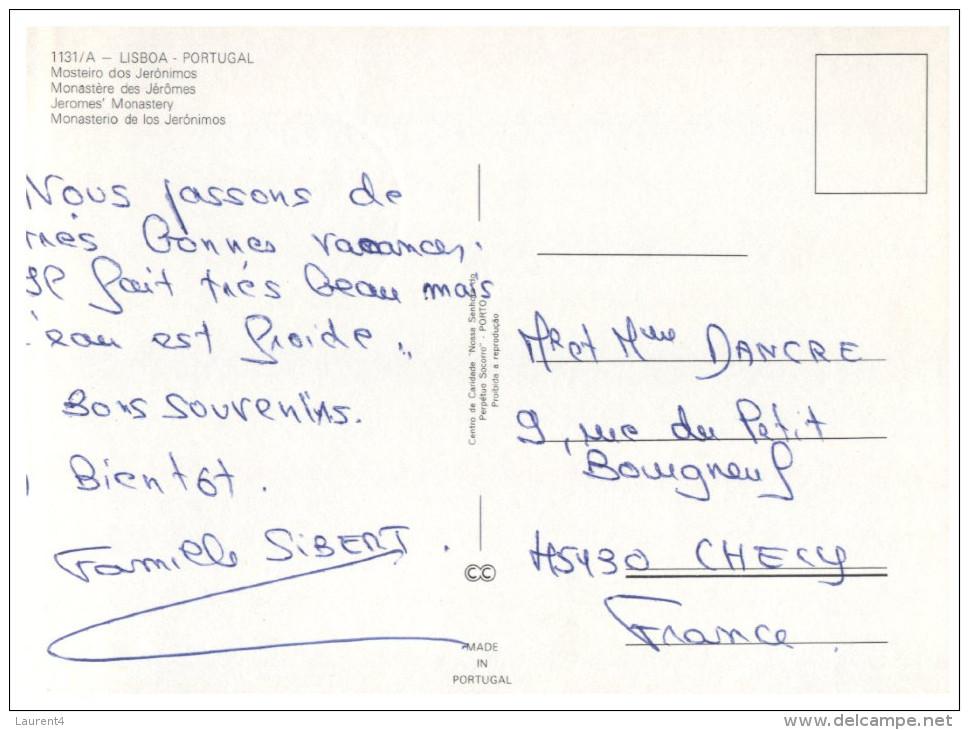 1131/A – LISBOA - PORTUGAL
Mosteiro dos Jerónimos
Monastère des Jérômes
Jeromes' Monastery
Monasterio de los Jerónimos
Nous passons de
très bonnes vacances.
Il fait très beau mais
l'eau est froide..
Bons souvenirs.
Bientôt.
Famille SIBERT.
Centro de Caridade "Nossa Senhora do
Perpétuo Socorro" - PORTO
Proibida a reprodução
CC
MADE
IN
PORTUGAL
Mr et Mme DANCRE
9, rue du Petit
Bourgneuf
45430 CHECY
France.
Laurent4
www.delcampe.net